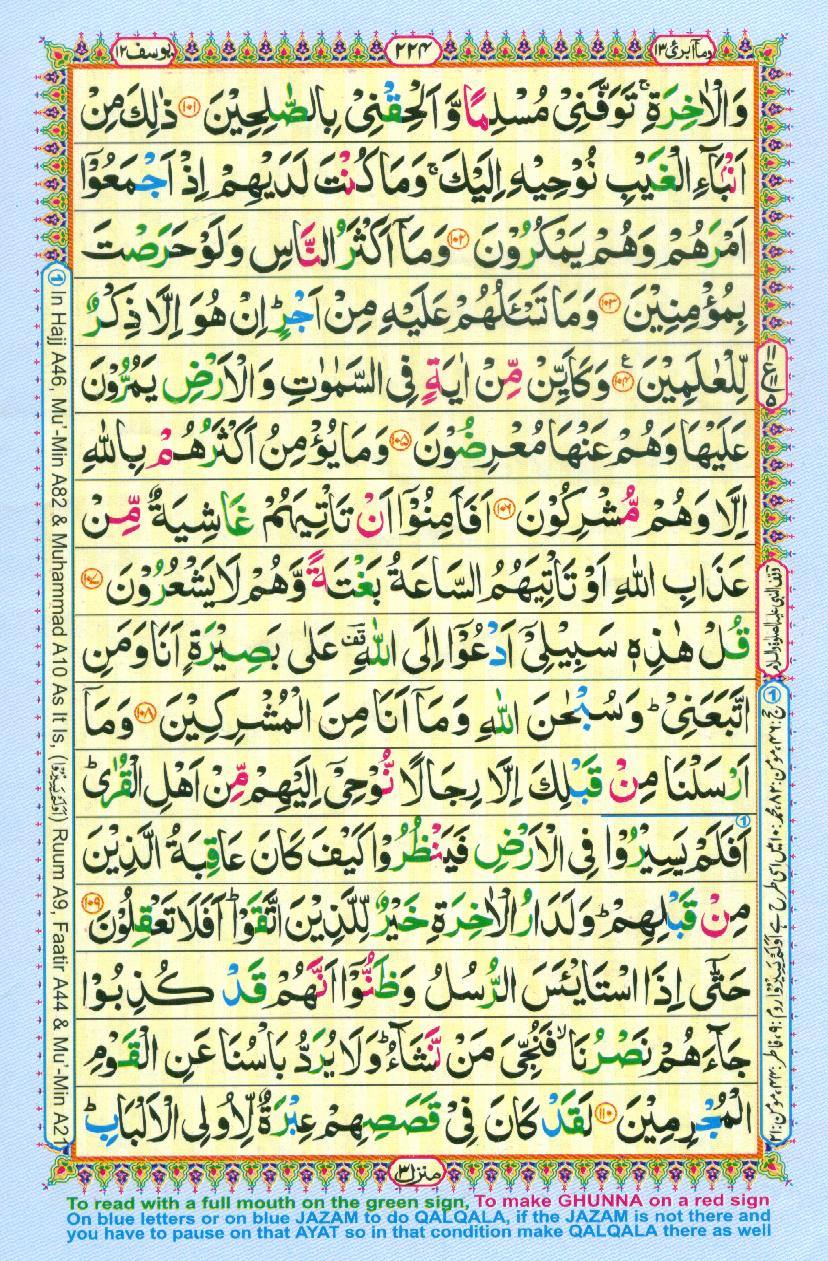 وماۤابرئ ١٣
٢٢٤
يوسف ١٢
وَالْاٰخِرَةِ ۚ تَوَفَّنِىْ مُسْلِمًا وَّ اَلْحِقْنِىْ بِالصّٰلِحِيْنَ ﴿١٠١﴾ ذٰلِكَ مِنْ
اَنْۢبَآءِ الْغَيْبِ نُوْحِيْهِ اِلَيْكَ ۚ وَمَا كُنْتَ لَدَيْهِمْ اِذْ اَجْمَعُوْۤا
اَمْرَهُمْ وَهُمْ يَمْكُرُوْنَ ﴿١٠٢﴾ وَمَاۤ اَكْثَرُ النَّاسِ وَلَوْ حَرَصْتَ
بِمُؤْمِنِيْنَ ﴿١٠٣﴾ وَمَا تَسْـَٔلُهُمْ عَلَيْهِ مِنْ اَجْرٍ ؕ اِنْ هُوَ اِلَّا ذِكْرٌ
لِّلْعٰلَمِيْنَ ﴿١٠٤﴾ ع وَكَاَيِّنْ مِّنْ اٰيَةٍ فِى السَّمٰوٰتِ وَالْاَرْضِ يَمُرُّوْنَ
عَلَيْهَا وَهُمْ عَنْهَا مُعْرِضُوْنَ ﴿١٠٥﴾ وَمَا يُؤْمِنُ اَكْثَرُهُمْ بِاللّٰهِ
اِلَّا وَهُمْ مُّشْرِكُوْنَ ﴿١٠٦﴾ اَفَاَمِنُوْۤا اَنْ تَاْتِيَهُمْ غَاشِيَةٌ مِّنْ
عَذَابِ اللّٰهِ اَوْ تَاْتِيَهُمُ السَّاعَةُ بَغْتَةً وَّهُمْ لَا يَشْعُرُوْنَ ﴿١٠٧﴾
قُلْ هٰذِهٖ سَبِيْلِىْۤ اَدْعُوْۤا اِلَى اللّٰهِ ؔقف عَلٰى بَصِيْرَةٍ اَنَا وَمَنِ
اتَّبَعَنِىْ ؕ وَسُبْحٰنَ اللّٰهِ وَمَاۤ اَنَا مِنَ الْمُشْرِكِيْنَ ﴿١٠٨﴾ وَمَاۤ
اَرْسَلْنَا مِنْ قَبْلِكَ اِلَّا رِجَالًا نُّوْحِىْۤ اِلَيْهِمْ مِّنْ اَهْلِ الْقُرٰى ؕ
اَفَلَمْ يَسِيْرُوْا فِى الْاَرْضِ فَيَنْظُرُوْا كَيْفَ كَانَ عَاقِبَةُ الَّذِيْنَ
مِنْ قَبْلِهِمْ ؕ وَلَدَارُ الْاٰخِرَةِ خَيْرٌ لِّلَّذِيْنَ اتَّقَوْا ؕ اَفَلَا تَعْقِلُوْنَ ﴿١٠٩﴾
حَتّٰۤى اِذَا اسْتَايْئَسَ الرُّسُلُ وَظَنُّوْۤا اَنَّهُمْ قَدْ كُذِبُوْا
جَآءَهُمْ نَصْرُنَا ۙ فَنُجِّىَ مَنْ نَّشَآءُ ؕ وَلَا يُرَدُّ بَاْسُنَا عَنِ الْقَوْمِ
الْمُجْرِمِيْنَ ﴿١١٠﴾ لَقَدْ كَانَ فِىْ قَصَصِهِمْ عِبْرَةٌ لِّاُولِى الْاَلْبَابِ ؕ
منزل ٣
① In Hajj A46, Mu'-Min A82 & Muhammad A10 As It Is, (اَوَلَمْ يَسِيْرُوْا) Ruum A9, Faatir A44 & Mu'-Min A21
To read with a full mouth on the green sign, To make GHUNNA on a red sign
On blue letters or on blue JAZAM to do QALQALA, if the JAZAM is not there and
you have to pause on that AYAT so in that condition make QALQALA there as well